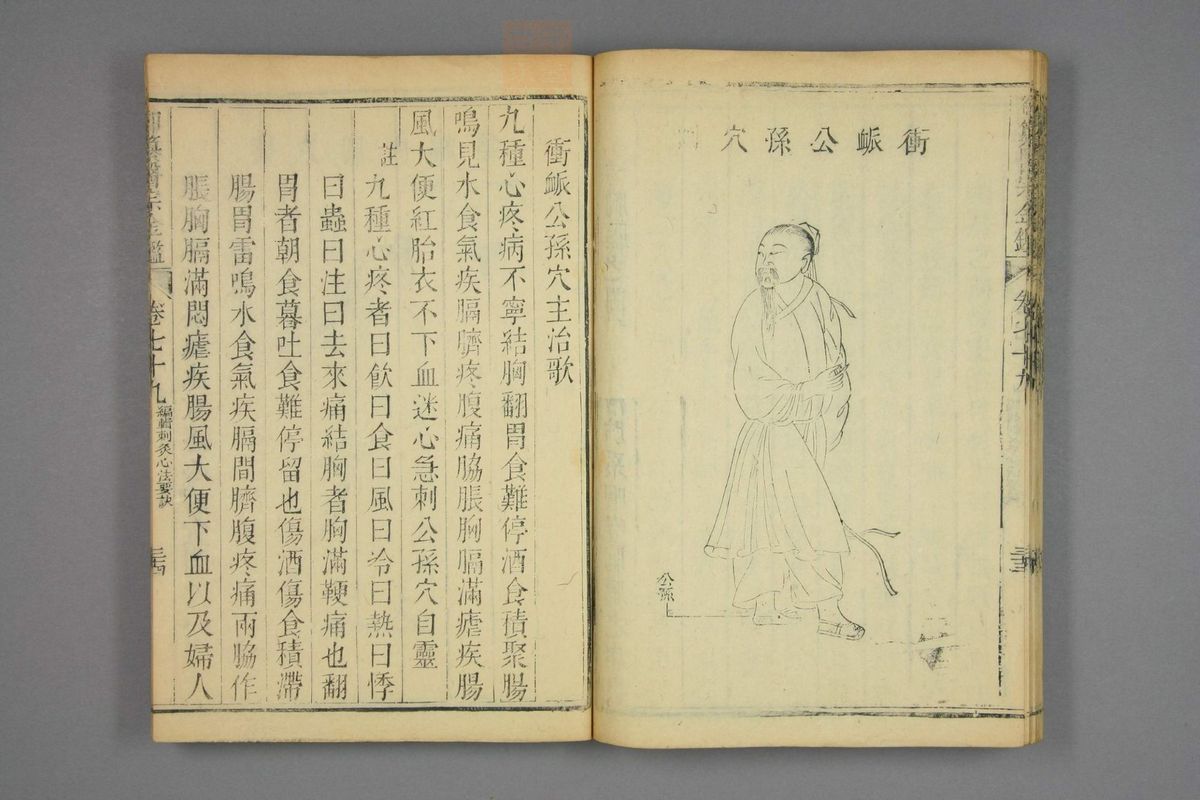 衝脈公孫穴
公孫
衝脈公孫穴主治歌
九種心疼病不寧結胸翻胃食難停酒食積聚腸
鳴見水食氣疾膈臍疼腹痛脇脹胸膈滿瘧疾腸
風大便紅胎衣不下血迷心急刺公孫穴自靈
註
九種心疼者曰飲曰食曰風曰冷曰熱曰悸
曰蟲曰注曰去來痛結胸者胸滿鞕痛也翻
胃者朝食暮吐食難停留也傷酒傷食積滯
腸胃雷鳴水食氣疾膈間臍腹疼痛兩脇作
脹胸膈滿悶瘧疾腸風大便下血以及婦人
御纂醫宗金鑑
卷七十九
編輯刺灸心法要訣